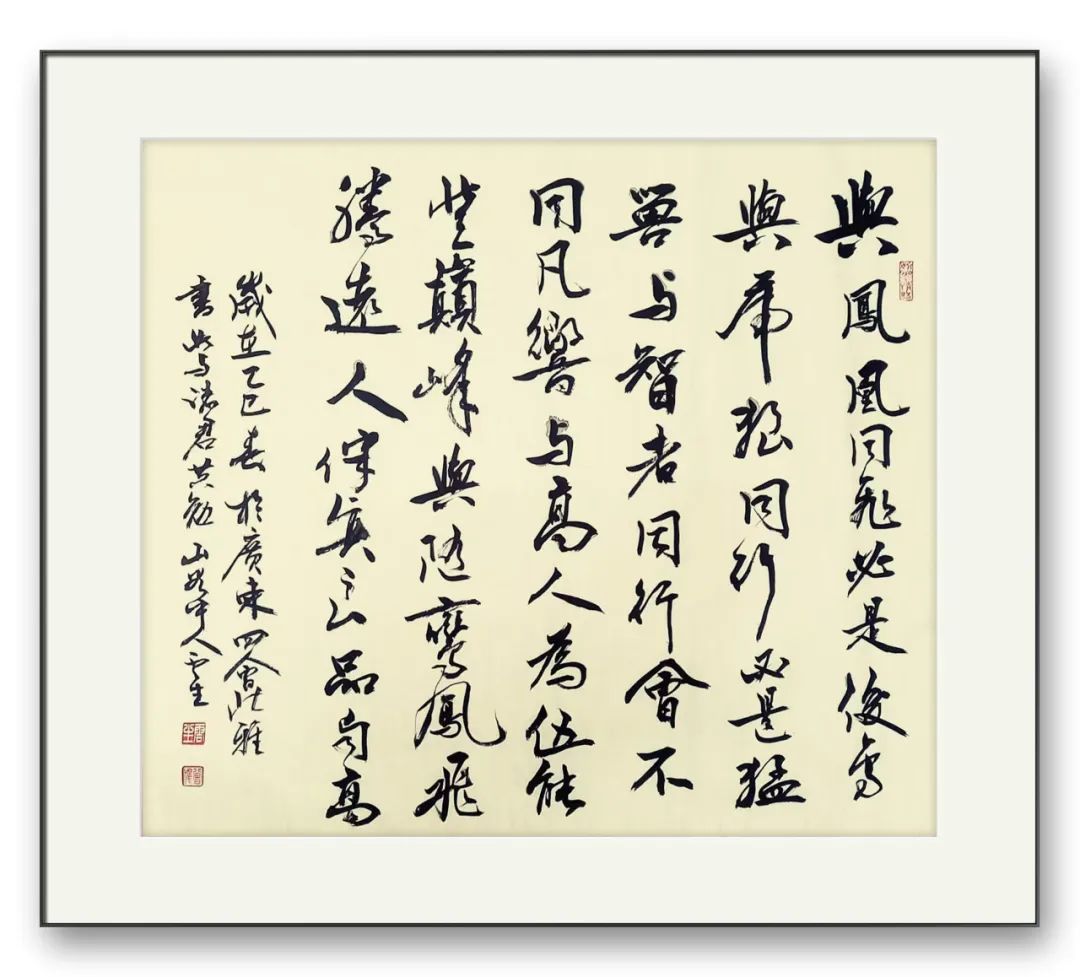 與鳳凰同飛必是俊鸟
與虎狼同行必是猛
兽与智者同行會不
同凡響与高人為伍能
登巔峰與隨鸞鳳飛
騰遠人伴賢良品自高
歲在乙巳春於廣東四會雅
書此与諸君共勉山人雲生